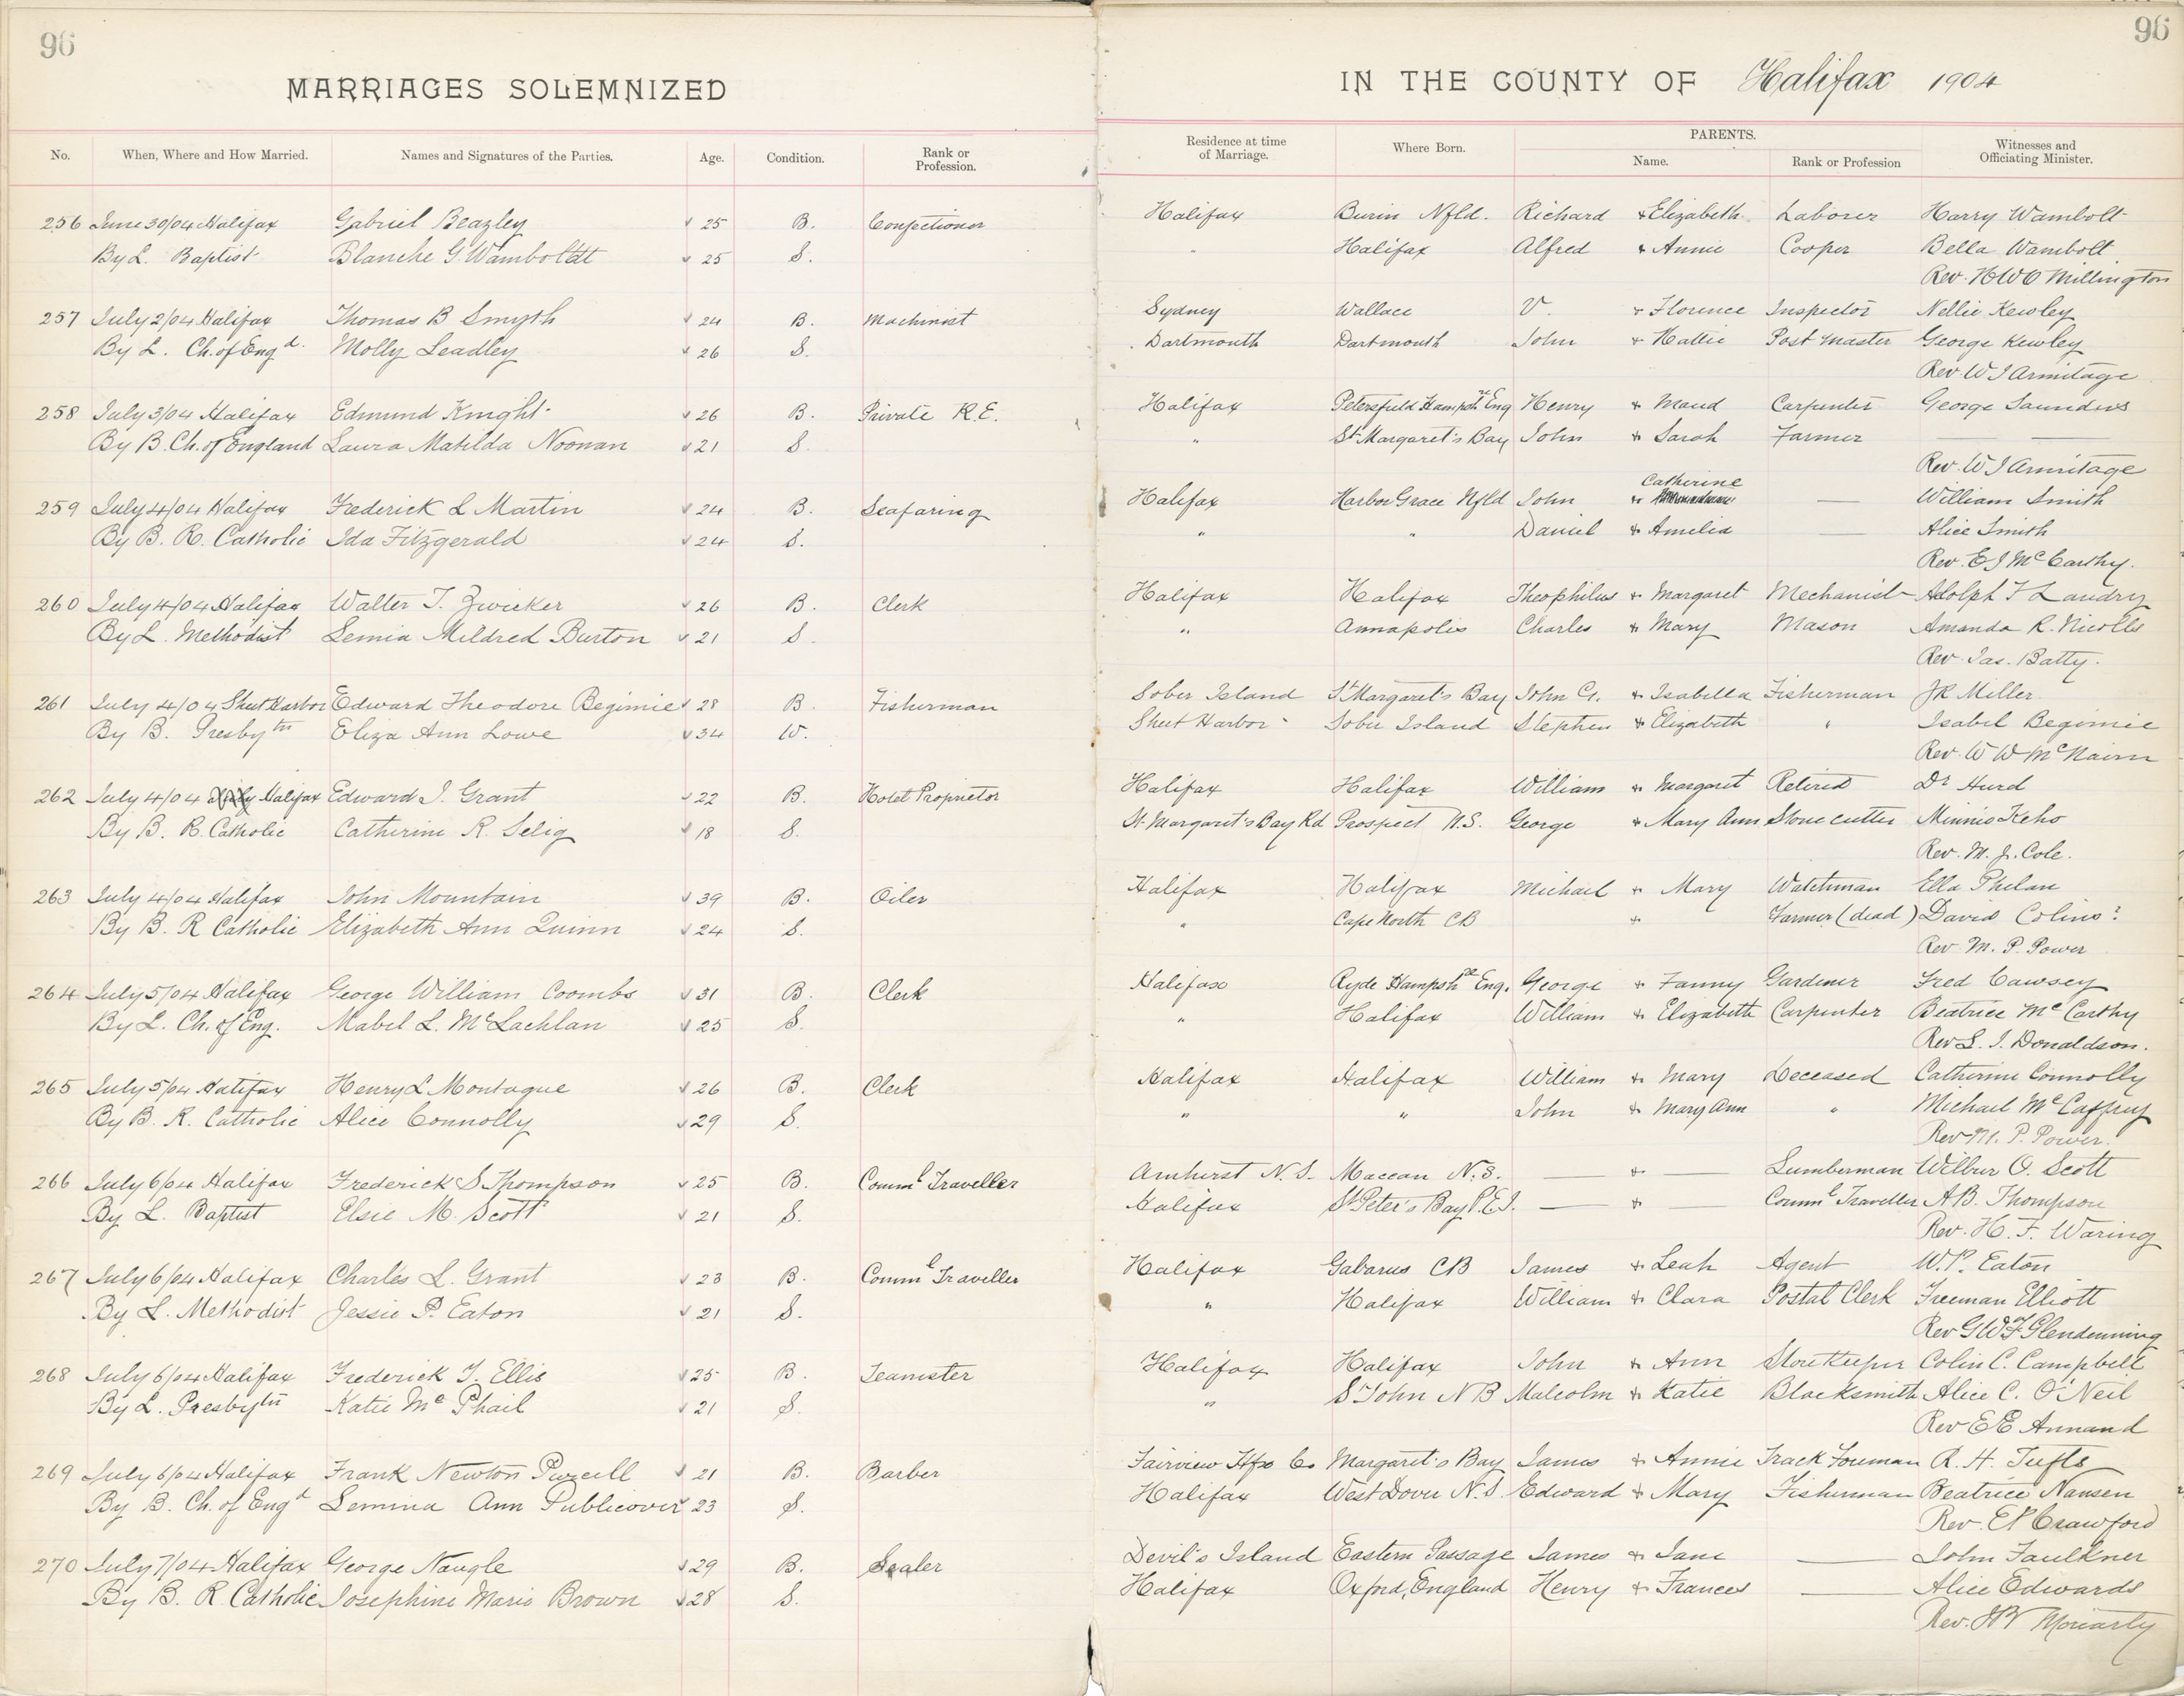 96
96
MARRIAGES SOLEMNIZED IN THE COUNTY OF Halifax 1904
No. When, Where and How Married. Names and Signatures of the Parties. Age. Condition. Rank or Profession. Residence at time of Marriage. Where Born. PARENTS. Name. Rank or Profession Witnesses and Officiating Minister.
256 June 30/04 Halifax Gabriel Beazley 25 B. Confectioner Halifax Burin Nfld. Richard & Elizabeth Laborer Harry Wambolt
By L. Baptist Blanche G Wamboldt 25 S. " Halifax Alfred & Annie Cooper Bella Wambolt
Rev. H W O Millington
257 July 2/04 Halifax Thomas B Smyth 24 B. Machinist Sydney Wallace V. & Florence Inspector Nellie Kewley
By L. Ch. of Engd. Molly Leadley 26 S. Dartmouth Dartmouth John & Hattie Post Master George Kewley
Rev. W J Armitage
258 July 3/04 Halifax Edmund Knight 26 B. Private R.E. Halifax Petersfield Hampsh Eng Henry & Maud Carpenter George Saunders
By B. Ch. of England Laura Matilda Noonan 21 S. " St Margaret's Bay John & Sarah Farmer — —
Rev. W J Armitage
Catherine
259 July 4/04 Halifax Frederick L Martin 24 B. Seafaring Halifax Harbor Grace Nfld John & — William Smith
By B. R. Catholic Ida Fitzgerald 24 S. " " Daniel & Amelia — Alice Smith
Rev. E J McCarthy.
260 July 4/04 Halifax Walter T. Zwicker 26 B. Clerk Halifax Halifax Theophilus & Margaret Mechanist Adolph F Landry
By L. Methodist Lemia Mildred Burton 21 S. " Annapolis Charles & Mary Mason Amanda R. Nicolls
Rev. Jas. Batty.
261 July 4/04 Sheet Harbor Edward Theodore Begimie 28 B. Fisherman Sober Island St Margaret's Bay John G. & Isabella Fisherman J R Miller
By B. Presbytn Eliza Ann Lowe 34 W. Sheet Harbor Sober Island Stephen & Elizabeth " Isabel Begimie
Rev. W W McNairn
262 July 4/04 Halifax Edward J. Grant 22 B. Hotel Proprietor Halifax Halifax William & Margaret Retired Dr Hurd
By B. R. Catholic Catherine R. Selig 18 S. St. Margaret's Bay Rd Prospect N.S. George & Mary Ann Stone cutter Minnie Keho
Rev. M. J. Cole.
263 July 4/04 Halifax John Mountain 39 B. Oiler Halifax Halifax Michael & Mary Watchman Ella Phelan
By B. R Catholic Elizabeth Ann Quinn 24 S. " Cape North CB & Farmer (dead) David Colins?
Rev M. P. Power
264 July 5/04 Halifax George William Coombs 31 B. Clerk Halifax Ryde Hampsh Eng. George & Fanny Gardener Fred Cawsey
By L. Ch. of Eng. Mabel L. McLachlan 25 S. " Halifax William & Elizabeth Carpenter Beatrice McCarthy
Rev L. J. Donaldson.
265 July 5/04 Halifax Henry L Montague 26 B. Clerk Halifax Halifax William & Mary Deceased Catherine Connolly
By B. R. Catholic Alice Connolly 29 S. " " John & Mary Ann " Michael McCaffrey
Rev M. P. Power.
266 July 6/04 Halifax Frederick S Thompson 25 B. Comml Traveller Amherst N.S. Maccan N.S. — & — Lumberman Wilbur O. Scott
By L. Baptist Elsie M. Scott 21 S. Halifax St Peter's Bay P.E.I. — & — Comml Traveller A B. Thompson
Rev. H. F. Waring
267 July 6/04 Halifax Charles L. Grant 23 B. Comml Traveller Halifax Gabarus CB James & Leah Agent W. P. Eaton
By L. Methodist Jessie P. Eaton 21 S. " Halifax William & Clara Postal Clerk Freeman Elliott
Rev G W F Glendenning
268 July 6/04 Halifax Frederick J. Ellis 25 B. Teamster Halifax Halifax John & Ann Store Keeper Colin C. Campbell
By L. Presbytn Katie McPhail 21 S. " St John N B Malcolm & Katie Blacksmith Alice C. O'Neil
Rev E E Annand
269 July 6/04 Halifax Frank Newton Purcell 21 B. Barber Fairview Hfx Co Margaret's Bay James & Annie Track Foreman R. H. Tufts
By B. Ch. of Engd Lemina Ann Publicover 23 S. Halifax West Dover N.S. Edward & Mary Fisherman Beatrice Nansen
Rev. E P Crawford
270 July 7/04 Halifax George Naugle 29 B. Sealer Devil's Island Eastern Passage James & Jane — John Faulkner
By B. R. Catholic Josephine Marie Brown 28 S. Halifax Oxford, England Henry & Frances — Alice Edwards
Rev. Moriarty